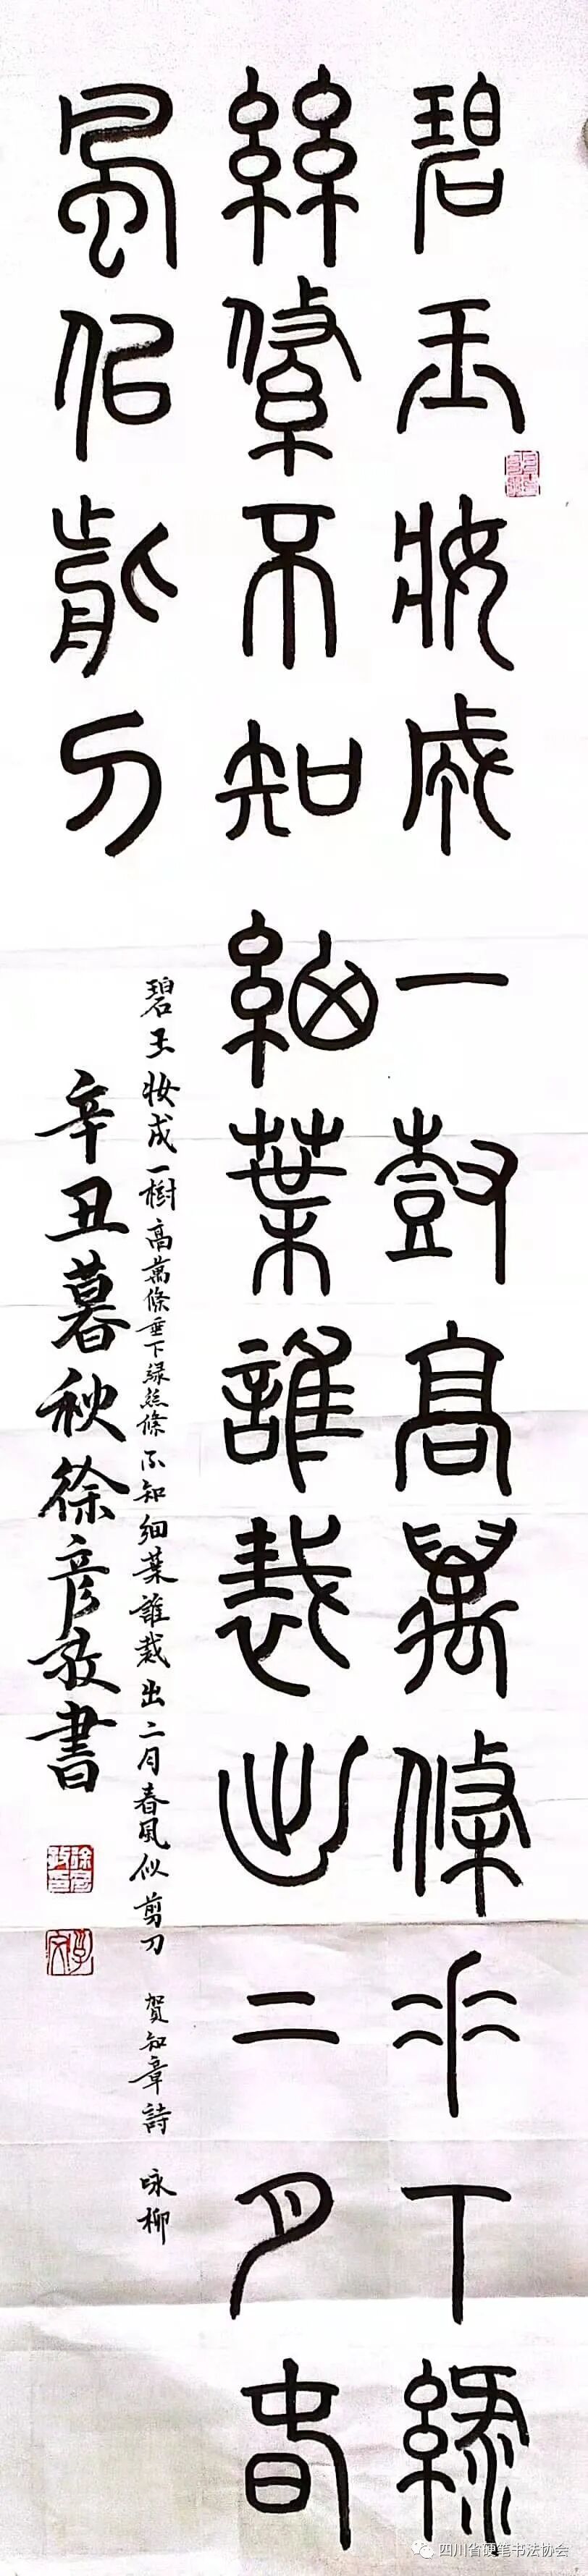 碧玉妝成一樹高萬條垂下綠
絲絛不知細葉誰裁出二月春
風似前刀
碧玉妝成一樹高萬條垂下綠絲條不知細葉誰裁出二月春風似剪刀 賀知章詩 咏柳
辛丑暮秋徐彦敏書
四川省硬笔书法协会